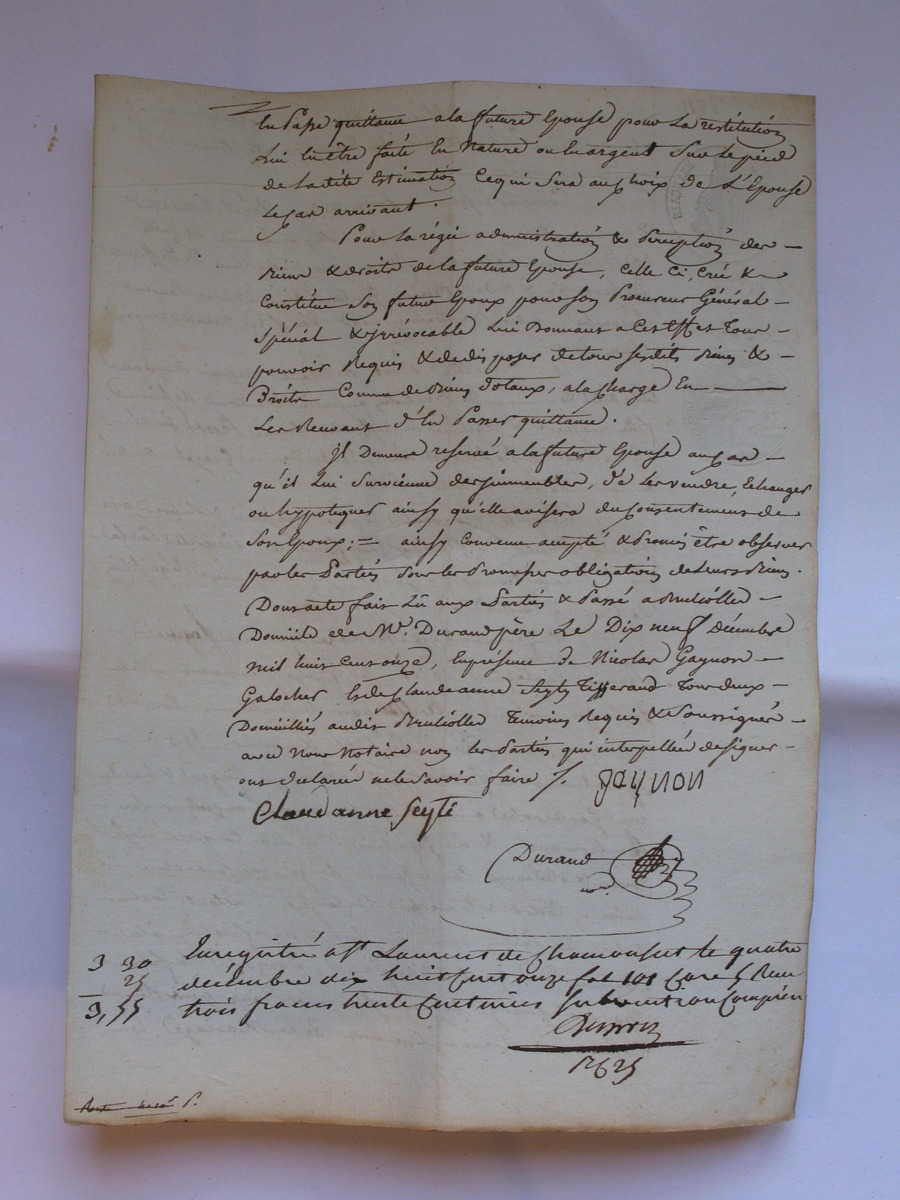 En Passe quittance a la future Epouse pour La restitution
Lui En être faite En Nature ou En argent Sur le pied
de Ladite Estimation Ce qui Sera au choix de L'Epouse
Le cas arrivant.
Pour La régie administration & perception des
Biens & droits de la future Epouse, Celle Ci, Crée &
Constitue Son futur Epoux pour Son Procureur Général
Spécial & jrrévocable Lui Donnant a Cet Effet Tout
pouvoir Requis & de disposer de tous Sesdits Biens &
Droits Comme de Biens dotaux, a la charge En
Les Recevant d'En Passer quittance.
jl Demeure reservé a la future Epouse au cas
qu'il Lui Survienne des jmmeubles, d'a Les vendre, Echanger
ou hypotequer ainsy qu'elle avisera du Consentement de
Son Epoux; = ainsy Convenu accepté & Promis être observer
par les Parties Sous les Promesses obligations de Leurs Biens.
Dont acte fait Lû aux Parties & Passé a Brulliolles
Domicile de Mr. Durand père Le Dix neuf décembre
mil huit Cent onze, En présence de Nicolas Gaynon
Galocher Et de Claude anne Seyty Tisserand Tous deux
Domiciliés audit Brulliolles Temoins Requis & Soussignés
avec Nous Notaire non les Parties qui interpellées de signer
ont déclarées ne le Savoir faire /. gaynon
Claud anne Seyti
Durand
nore.
3 30 Enregistré a St Laurent de Chamousset le quatre
25 décembre dix huit Cent onze fol 101 Case 5 Reçu
3,55 trois francs trente Centimes Subvention Comprise